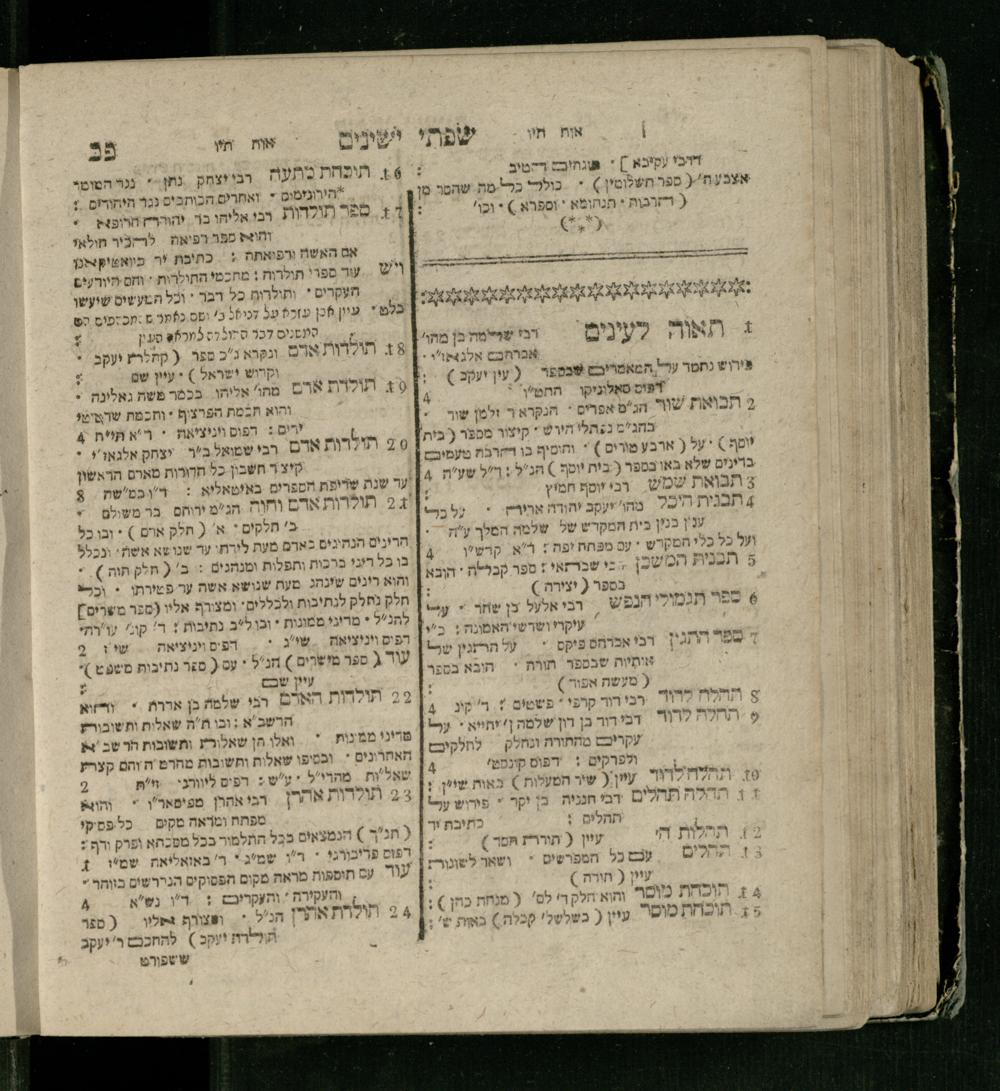 אות תיו שפתי ישינים אות תיו פב
דרבי עקיבא ] · שגתים דהטיב
אצבע ח' ( ספר תשלומין ) · כולל כל מה שחסר מן :
( הרבות · תנחומא · וספרא ) · וכו' :
(***)
1. תאוה לעינים רבי שלמה בן מהו'
אברהם אלגאזי ·
פירוש נחמד על המאמרים שבספר ( עין יעקב ) :
דפוס סאלוניקו התט"ו 4
2 תבואת שור הג"מ אפרים · הנקרא ר' זלמן שור ·
בהג"מ נפתלי הירש · קיצור מספר ( בית
יוסף ) · על ( ארבע טורים ) · והוסיף בו הרבה טעמים
בדינים שלא באו בספר ( בית יוסף ) הנ"ל : ד"ל שע"ה 4
3 תבואת שמש רבי יוסף חמיץ
4 תבנית היכל מהו' יעקב יהודה אריה · על כל
ענין בנין בית המקדש של שלמה המלך ע"ה ·
ועל כל כלי המקדש · עם מפתח יפה : ד"א קדש"ו 4
5 תבנית המשכן רבי שבתאי : ספר קבלה · הובא
בספר ( יצירה ) :
6 ספר תגמולי הנפש רבי הלל בן שחר · על
עיקרי ושרשי האמונה : כ"י
7 ספר התגין רבי אברהם פיקס · על התגין של
אותיות שבספר תורה · הובא בספר
( מעשה אפוד ) :
8 תהלה לדוד רבי דוד קרפי · פשטים : ד' קונ' 4
9 תהלה לדוד רבי דוד בן דון שלמה ן' יחייא · על
עקרים מהתורה ונחלק לחלקים
ולפרקים : דפוס קונסט' 4
10. תהלה לדוד עיין ( שיר המעלות ) באות שי"ן :
11 תהלה תהלים רבי חנניה בן יקר · פירוש על
תהלים : כתיבת יד
12. תהלות ה' עיין ( תודת חסד ) :
13. תהלים עם כל המפרשים · ושאר לשונות
עיין ( תורה ) :
14. תוכחת מוסר והוא חלק ד' לס' ( מנחת כהן ) :
15. תוכחת מוסר עיין ( בשלשל' קבלה ) באות ש' :
16. תוכחת מתעה רבי יצחק נתן · נגד המומר
הירונימוס · ואחרים הכותבים נגד היהודים :
17. ספר תולדות רבי אליהו בר יהודה הרופא ·
והוא ספר רפיאה להכיר חולאי
אם האשה ורפואתה : כתיבת יד בוואטיקאנו
ויש עוד ספרי תולדות : מחכמי התולדות · והם היודעים
העקרים · ותולדות כל דבר · וכל המעשים שיעשו
בלט · עיין אבן עזרא על דניאל ב' ושם נאמר
18. תולדות אדם ונקרא ג"כ ספר ( קהלת יעקב ·
וקדוש ישראל ) · עיין שם :
19. תולדת אדם מהו' אליהו בכמר משה גאלינה ·
והוא חכמת הפרצוף · וחכמת שרטוטי
ידים : דפוס ויניציאה · ד"א תי"ח 4
20 תולדות אדם רבי שמואל ב"ר יצחק אלגאזי ·
קיצור חשבון כל הדורות מאדם הראשון
עד שנת שריפת הספרים באיטאליא : ד"ו במ"שה 8
21. תולדות אדם וחוה הג"מ ירוחם בר משולם ·
ב' חלקים · א' ( חלק אדם ) · ובו כל
הדינים הנהיגים באדם מעת לידתו עד שנושא אשה · ונכלל
בו כל דיני ברכות ותפלות ומנהגים : ב' ( חלק חוה ) ·
והוא דינים שינהג מעת שנושא אשה עד פטירתו · וכל
חלק נחלק לנתיבות ולכללים · ומצורף אליו ( ספר משרים ]
להנ"ל · מדיני ממונות · ובו ל"ב נתיבות : ד' קונ' עו"רה ·
דפוס ויניציאה שי"ג · דפוס ויניציאה שי"ז 2
עוד ( ספר מישרים ) הנ"ל · עם ( ספר נתיבות משפט ) ·
עיין שם :
22 תולדות האדם רבי שלמה בן אדרת · והוא
הרשב"א : ובו ת"ה שאלות ותשובות
מדיני ממונות · ואלו הן שאלות ותשובות הרשב"א
האחרונים · ובסופו שאלות ותשובות מהרט"ה והם קצרת
שאל"ות מהרי"ל · ע"ש : דפוס ליוורנו · תי"ח 2
23 תולדות אהרן רבי אהרן מפיסאר"ו · והוא
מפתח ומראה מקום כל פסיקי
( תנ"ך ) הנמצאים בכל התלמוד בכל מסכתא ופרק ודף :
דפוס פריבורגי · ד"ו שמ"ג · ד' באזאליאה שמ"ז 1
עוד עם תוספות מראה מקום הפסוקים הנדרשים בזוהר ·
והעקידה · והעקרים : ד"ו נש"א 4
24 תולדת אהרן הנ"ל · ומצורף אליו ( ספר
תולדת יעקב ) להחכם ר' יעקב
ששפורט